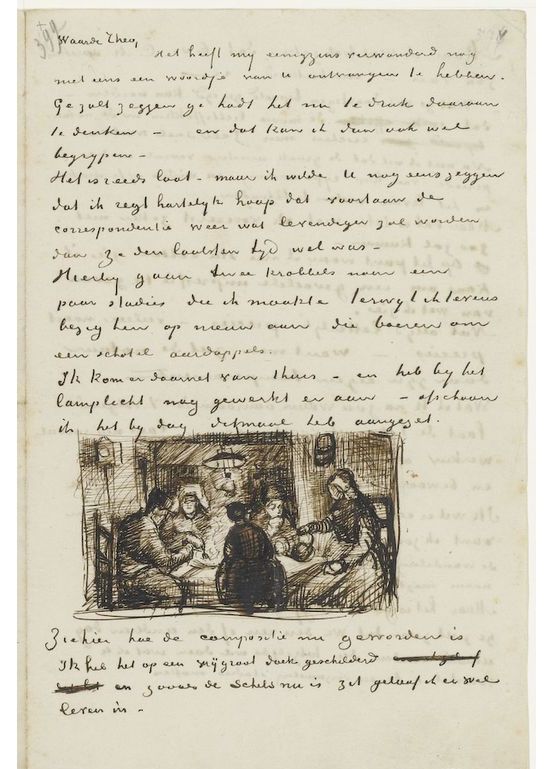 399
Waarde Theo,
Het heeft mij eenigzins verwonderd nog
niet eens een woordje van U ontvangen te hebben.
Ge zult zeggen ge hadt het nu te druk daaraan
te denken – en dat kan ik dan ook wel
begrijpen –
Het is reeds laat – maar ik wilde U nog eens zeggen
dat ik regt hartelyk hoop dat voortaan de
correspondentie weer wat levendiger zal worden
dan ze den laatsten tyd wel was –
Hierby gaan twee krabbels naar een
paar studies die ik maakte terwyl ik tevens
bezig ben op nieuw aan die boeren om
een schotel aardappels.
Ik kom er daarnet van thuis – en heb by het
lamplicht nog gewerkt er aan – ofschoon
ik het by dag ditmaal heb aangezet.
Ziehier hoe de compositie nu geworden is
Ik heb het op een vrij groot doek geschilderd
en zooals de schets nu is zit geloof ik er wel
leven in –